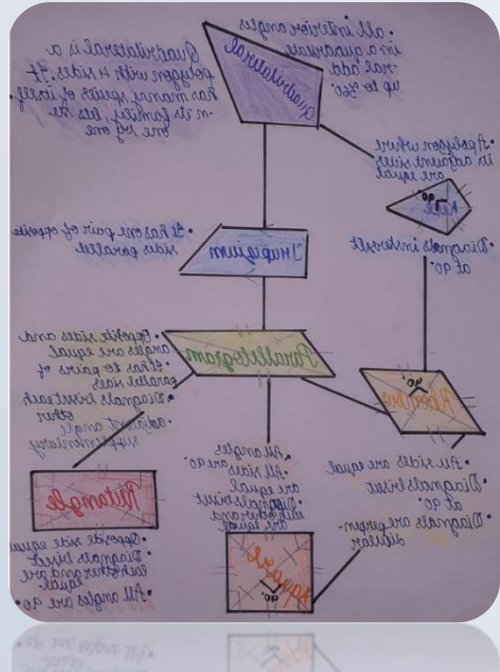 quadrilateral
• all interior angles
in a quadrilate
ral add
up to 360°
Quadrilateral is a
polygon with 4 sides. It
has many species of itself.
in its family, lets see
one by one
• A polygon where
its adjacent sides
are equal
Kite
90°
• Diagnols insterset
at 90°
Trapizium
• It has one pair of opposite
sides parallel
Parallelogram
• Opposite sides and
angles are equal
• It has to pairs of
parallel sides
• Diagnols bisect each
other
• adjacent angle
supplimentary
Rhombus
90°
• All sides are equal
• Diagnols bisect
at 90°
• Diagnols are perpen-
diculer
Rectangle
• Opposite side equal
• Diagnols bisect
each other and are
equal
• All angles are 90°
• All angles
are 90°
• All sides
are equal
• Diagnols bisect
each other and
are equal
square
90°